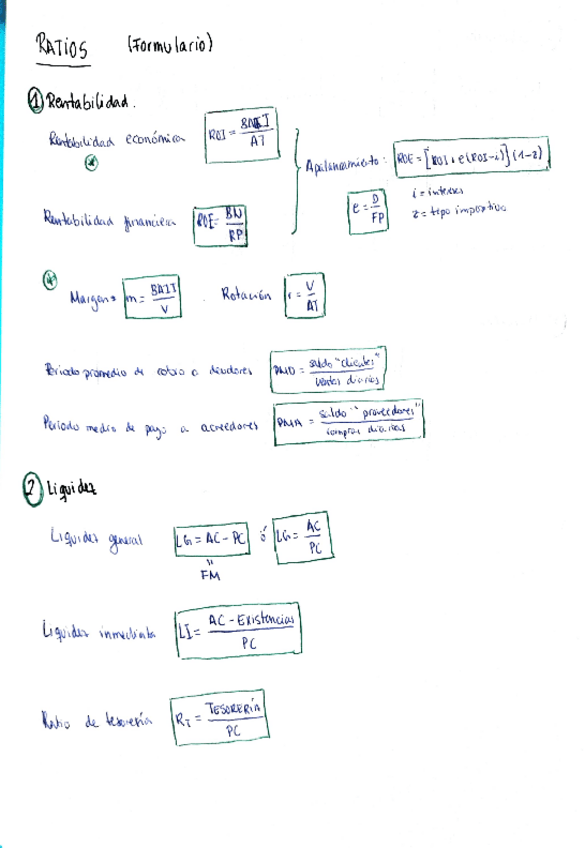 RATIOS (Formulario)
① Rentabilidad.
Rentabilidad económica ROI = BAIT / AT
Apalancamiento: ROE = [ROI + e(ROI-i)](1-z)
e = D / FP
i = interés
z = tipo impositivo
Rentabilidad financiera ROE = BN / RP
Margen = m = BAIT / V . Rotación r = V / AT
Periodo promedio de cobro a deudores PMD = saldo "clientes" / ventas diarias
Periodo medio de pago a acreedores PMA = saldo "proveedores" / compras diarias
② Liquidez
Liquidez general LG = AC - PC ó LG = AC / PC
"
FM
Liquidez inmediata LI = AC - Existencias / PC
Ratio de tesorería RT = TESORERÍA / PC